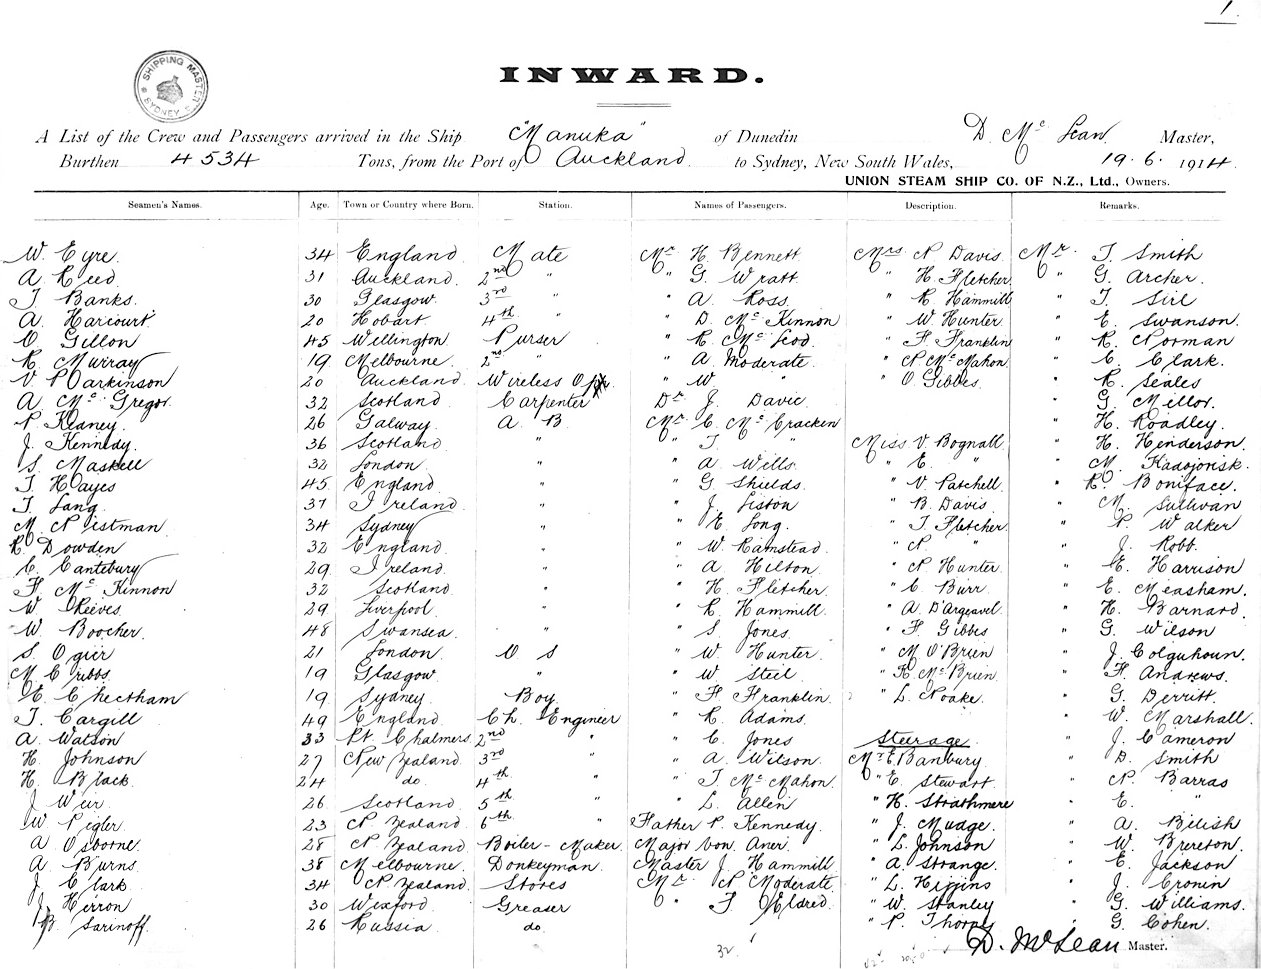 1.
SHIPPING MASTER
SYDNEY
INWARD.
A List of the Crew and Passengers arrived in the Ship "Manuka" of Dunedin D. Mc Lean Master,
Burthen 4534 Tons, from the Port of Auckland to Sydney, New South Wales, 19.6.1914
UNION STEAM SHIP CO. OF N.Z., Ltd., Owners.
Seamen's Names. Age. Town or Country where Born. Station. Names of Passengers. Description. Remarks.
W. Eyre 34 England Mate Mr. H. Bennett Mrs N Davis Mr. T. Smith
A. Reed 31 Auckland 2nd " " G. Wratt " H. Fletcher " G. Archer
T Banks 30 Glasgow 3rd " " A. Ross " R. Hammill " T.
A. Harcourt 20 Hobart 4th " " D. Mc Kinnon " W Hunter " E. Swanson
O Gillon 45 Wellington Purser " R. Mc Leod " F Franklin " R. Norman
R. Murray 19 Melbourne 2nd " " A Moderate " N. Mc Mahon " C. Clark
V Parkinson 20 Auckland Wireless Opr. " W " " O Gibbes " R. Seales
A Mc Gregor 32 Scotland Carpenter Dr. J. Davie " G.
P. Keaney 26 Galway A B Mr. C. Mc Cracken " H. Roadley
J. Kennedy 36 Scotland " " T " Miss V. Bognall " H. Henderson
S. Maskell 32 London " " A Wills " E. " " M.
T Hayes 45 England " " G Shields " V Patchell " R. Boniface
T. Lang 37 Ireland " " J. Liston " B. Davis " M. Sullivan
M Nistman 34 Sydney " " E. Long " T Fletcher " P. Walker
R. Dowden 32 England " " W Ramstead " N. " " J. Robb
C. Cantebury 29 Ireland " " A Hilton " N Hunter " E. Harrison
F. Mc Kinnon 32 Scotland " " H. Fletcher " C Burr " E. Measham
W Reeves 29 Liverpool " " R Hammill " A. D'Argeavel " H. Barnard
W. Boocher 48 Swansea " " S Jones " F Gibbes " G. Wilson
S Ogier 21 London O S " W Hunter " M O'Brien " J. Colquhoun
M Cribbs 19 Glasgow " W Steel " K. McBrien " F. Andrews
E Cheetham 19 Sydney Boy " F Franklin " L. Noake " G. Derritt
T. Cargill 49 England Ch. Engineer " R Adams " W. Marshall
A. Watson 33 Pt. Chalmers 2nd " " C. Jones Steerage " J. Cameron
H. Johnson 27 New Zealand 3rd " " A. Wilson Mr E Banbury " D. Smith
H. Black 24 do. 4th " " T McMahon " E. Stewart " N. Barras
J Weir 26 Scotland 5th " " L. Allen " H. Strathmere " E. "
W Pegler 23 N Zealand 6th " Father P. Kennedy " J. Mudge " A.
A Osborne 28 N Zealand Boiler-Maker Major Von Aner " L. Johnson " W. Brereton
A Burns 38 Melbourne Donkeyman Master J Hammill " A Strange " E. Jackson
J Clark 34 N Zealand Stores Mr. N Moderate " L. Higgins " J. Cronin
J. Herron 30 Wexford Greaser " F Eldred " W. Stanley " G. Williams
B. Sarinoff 26 Russia do. " P. Thorpe " G. Cohen
D. McLean Master.
32